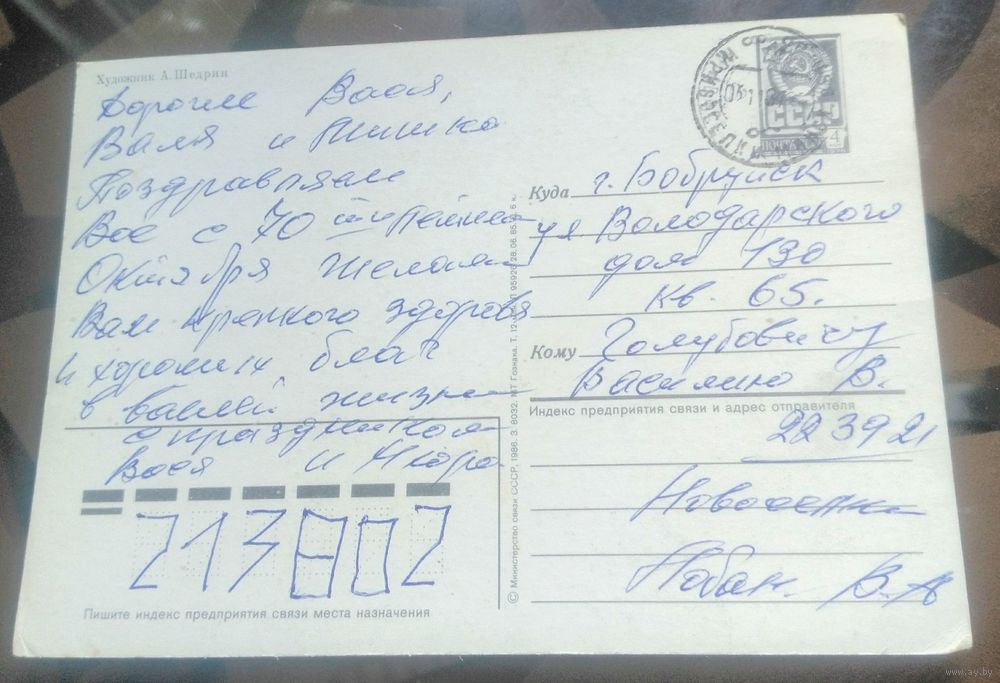 Художник А. Щедрин
Дорогие Вася,
Валя и Тишка
Поздравляем
Вас с 70
Октября Желаем
Вам крепкого здоровя
и хороших благ
в вашей жизни
с праздником
Вася и
213802
Пишите индекс предприятия связи места назначения
© Министерство связи СССР, 1986. З. 8032. МТ Гознака. Т. 12
СССР
ПОЧТА
4
Куда г. Бобруйск
ул Володарского
дом 130
кв. 65.
Кому Голубовичу
Василию В.
Индекс предприятия связи и адрес отправителя
223921
В. А
www.ay.by